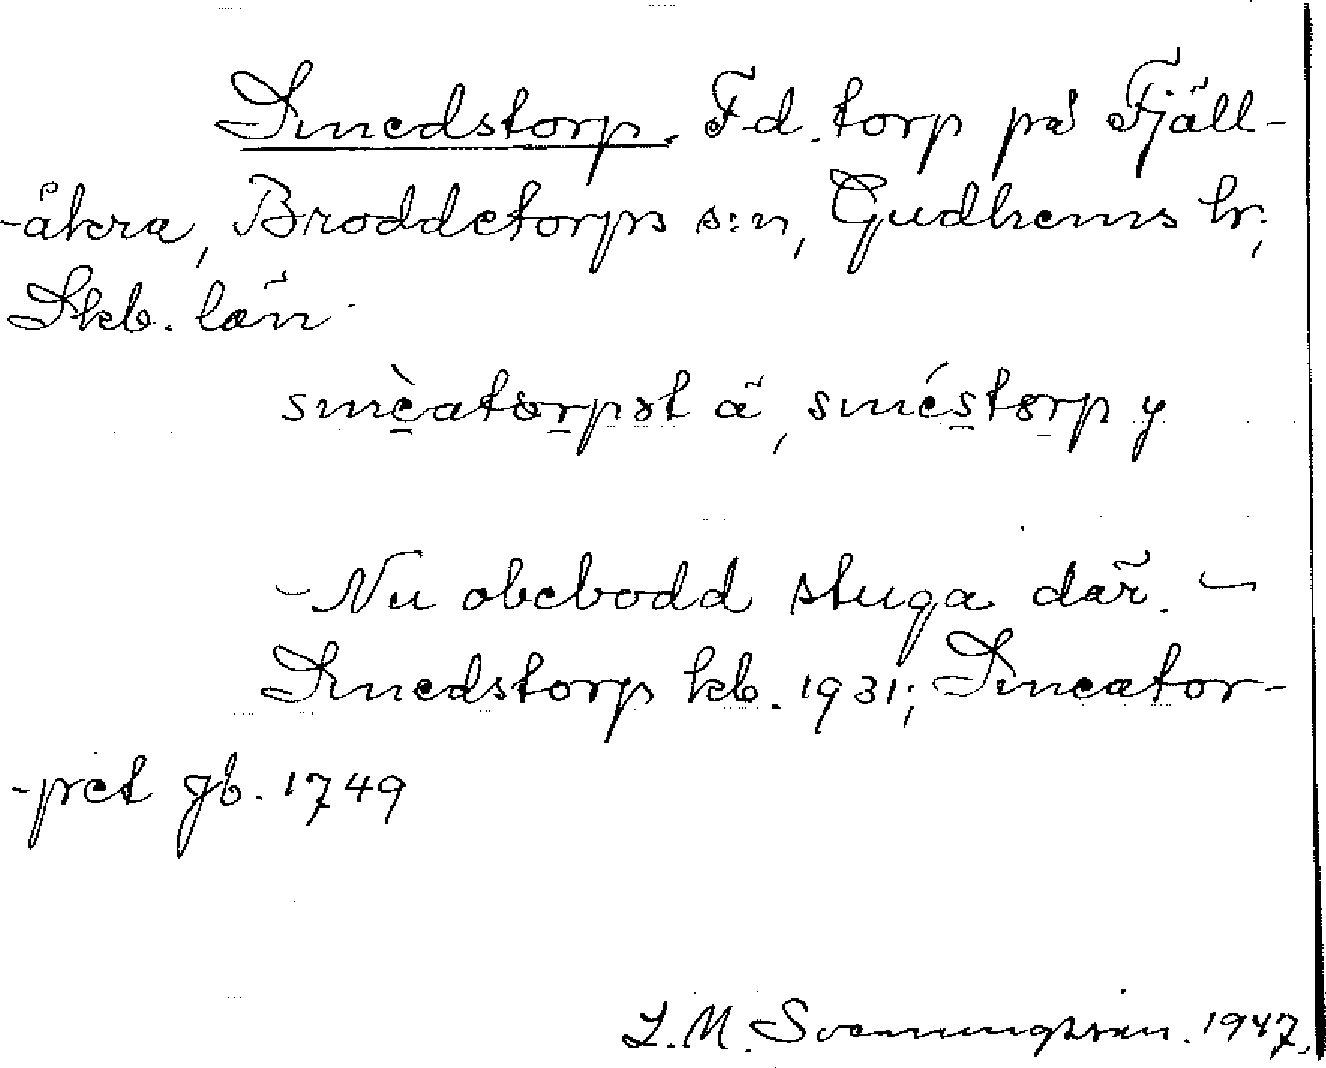 Smedstorp. F.d. torp på Fjäll-
-åkra, Broddetorps s:n, Gudhems hr;
Skb. län
smèatorpət ä, sméstorp y
- Nu obebodd stuga där. -
Smedstorp kb. 1931; Smeator-
-pet jb. 1749
L.M. Svenungsson. 1947.